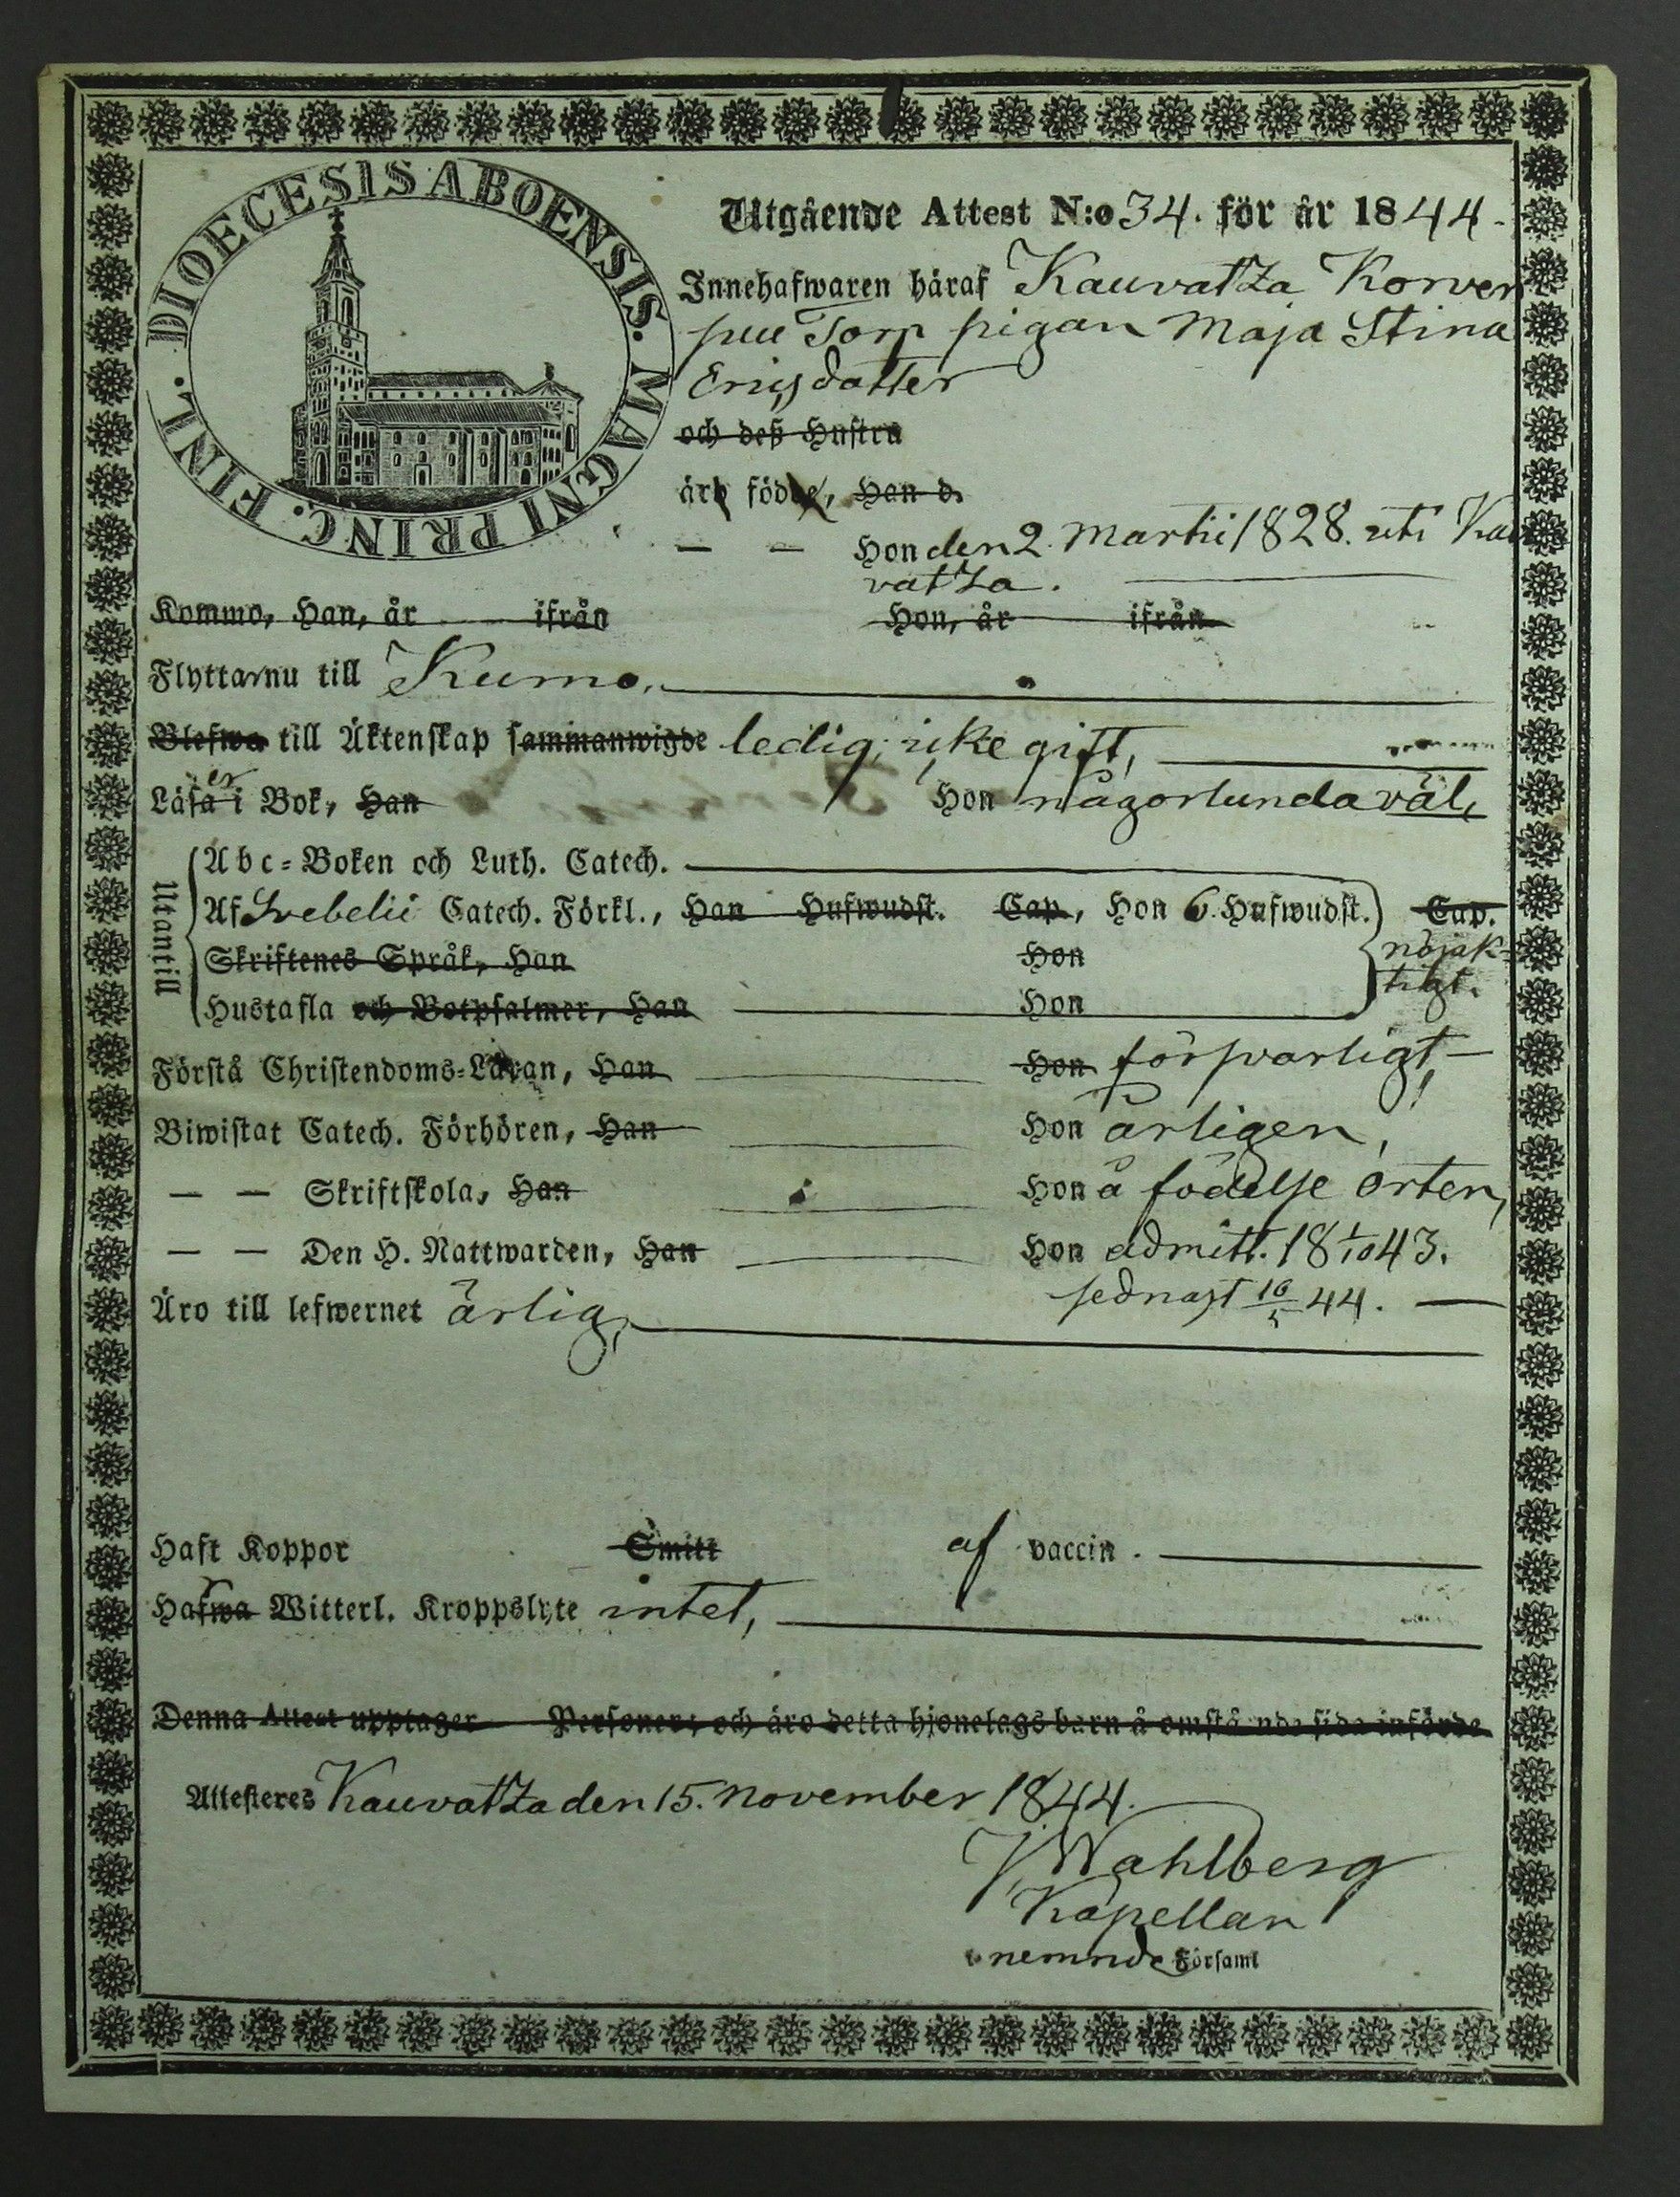 DIOECESIS ABOENSIS. MAGNI PRINC. FINL.
Utgående Attest N:o 34. för år 1844.
Innehafwaren häraf Kauvatza Korven
puu Torp pigan Maja Stina
Ericsdotter
och deß Hustru
äro födde, Han d.
— — Hon den 2 Martii 1828. uti Kau
vatza.
Kommo, Han, år ifrån Hon, år ifrån
Flyttar nu till Kumo.
Blefwo till Äktenskap sammanwigde ledig, icke gift,
Läser i Bok, Han Hon någorlunda väl,
Utantill
Abc-Boken och Luth. Catech.
Af Svebelii Catech. Förkl., Han Hufwudst. Cap, Hon 6. Hufwudst. Cap.
nöjak-
tigt.
Skriftenes Språk, Han Hon
Hustafla och Botpsalmer, Han Hon
Förstå Christendoms-Läran, Han Hon försvarligt,
Biwistat Catech. Förhören, Han Hon årligen,
— — Skriftskola, Han Hon å födelse orten,
— — Den H. Nattwarden, Han Hon admitt. 18 1/10 43.
sednast 16/5 44.
Äro till lefwernet ärlig,
Haft Koppor Smitt af vaccin.
Hafwa Witterl. Kroppslyte intet,
Denna Attest upptager Personer; och äro detta hjonelags barn å omstående sida införde
Attesteres Kauvatza den 15. November 1844.
J. Wahlberg
Kapellan
nemnde Församl